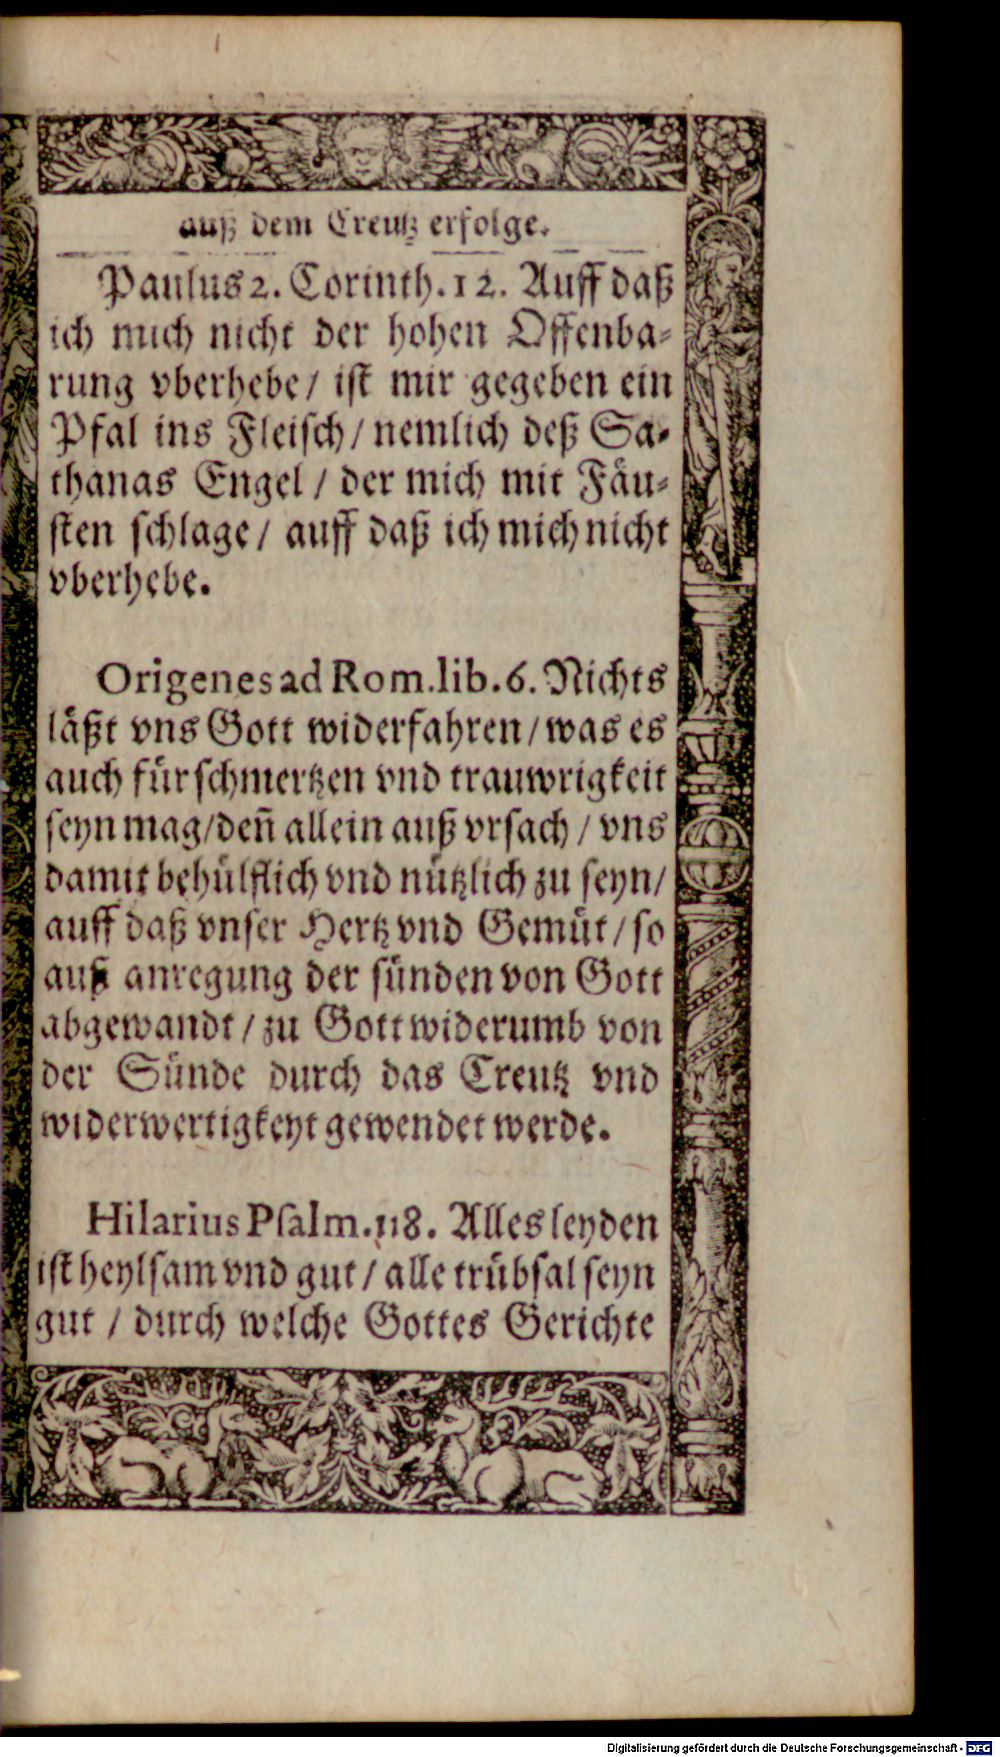 auß dem Creutz erfolge.
Paulus 2. Corinth. 12. Auff daß
ich mich nicht der hohen Offenba-
rung vberhebe / ist mir gegeben ein
Pfal ins Fleisch / nemlich deß Sa-
thanas Engel / der mich mit Fäu-
sten schlage / auff daß ich mich nicht
vberhebe.
Origenes ad Rom. lib. 6. Nichts
läßt vns Gott widerfahren / was es
auch für schmertzen vnd trauwrigkeit
seyn mag / deñ allein auß vrsach / vns
damit behülflich vnd nützlich zu seyn /
auff daß vnser Hertz vnd Gemüt / so
auß anregung der sünden von Gott
abgewandt / zu Gott widerumb von
der Sünde durch das Creutz vnd
widerwertigkeyt gewendet werde.
Hilarius Psalm. 118. Alles leyden
ist heylsam vnd gut / alle trübsal seyn
gut / durch welche Gottes Gerichte
Digitalisierung gefördert durch die Deutsche Forschungsgemeinschaft - DFG